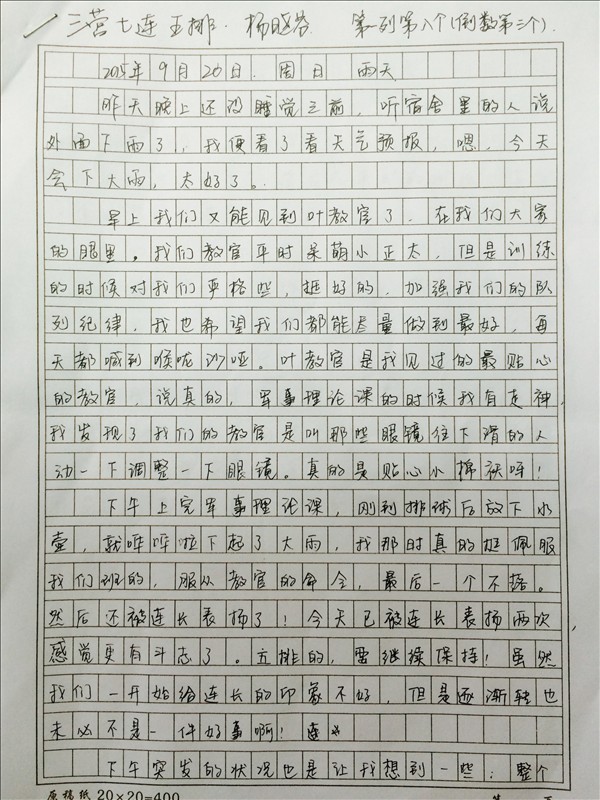 三营七连五排. 杨晓芬 第一列第八个(倒数第三个).
2015年9月20日. 周日 雨天
昨天晚上还没睡觉之前,听宿舍里的人说
外面下雨了,我便看了看天气预报,嗯,今天
会下大雨,太好了。
早上我们又能见到叶教官了,在我们大家
的眼里,我们教官平时呆萌小正太,但是训练
的时候对我们严格些,挺好的,加强我们的队
列纪律,我也希望我们都能尽量做到最好,每
天都喊到喉咙沙哑。叶教官是我见过的最贴心
的教官,说真的,军事理论课的时候我有走神,
我发现了我们的教官是叫那些眼镜往下滑的人
动一下调整一下眼镜。真的是贴心小棉袄呀!
下午上完军事理论课,刚到排球后放下水
壶,就哗哗啦下起了大雨,我那时真的挺佩服
我们班的,服从教官的命令,最后一个不落。
然后还被连长表扬了!今天已被连长表扬两次,
感觉更有斗志了。五排的,需继续保持!虽然
我们一开始给连长的印象不好,但是逐渐转也
未必不是一件好事啊!
下午突发的状况也是让我想到一些:整个
原稿纸 20×20=400